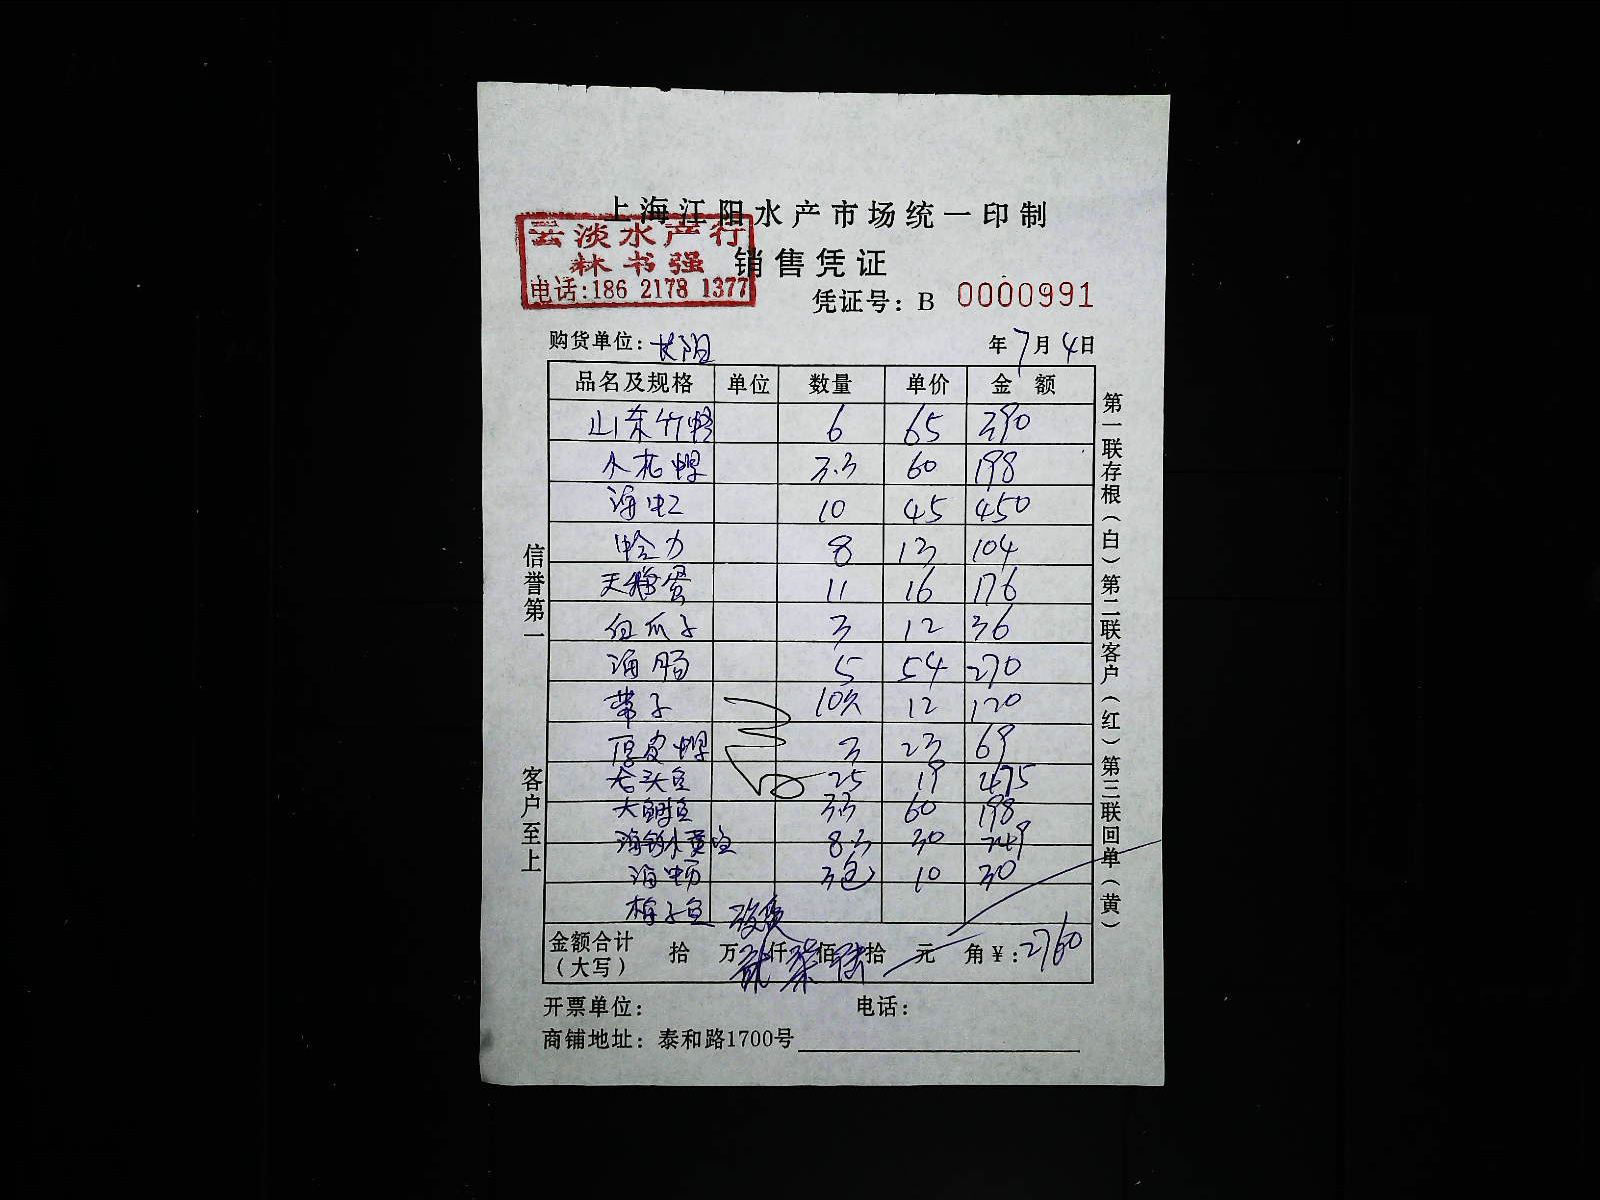 上海江阳水产市场统一印制
云淡水产行
林书强
电话:186 2178 1377
销售凭证
凭证号: B 0000991
购货单位: 长阳 年7月4日
品名及规格 单位 数量 单价 金额
山东竹蛏 6 65 390
小花螺 3.3 60 198
海虹 10 45 450
蛤力 8 13 104
天鹅蛋 11 16 176
白瓜子 3 12 36
海肠 5 54 270
带子 10只 12 120
厚皮螺 3 23 69
老头鱼 25 19 475
大鲷鱼 3.3 60 198
海钓小黄鱼 8.3 30 249
海蛎 3包 10 30
梅子鱼
金额合计（大写） 拾 万 贰 仟 柒 佰 陆 拾 元 角 ¥: 2760
开票单位: 电话:
商铺地址: 泰和路1700号
信誉第一
客户至上
第一联存根（白）第二联客户（红）第三联回单（黄）